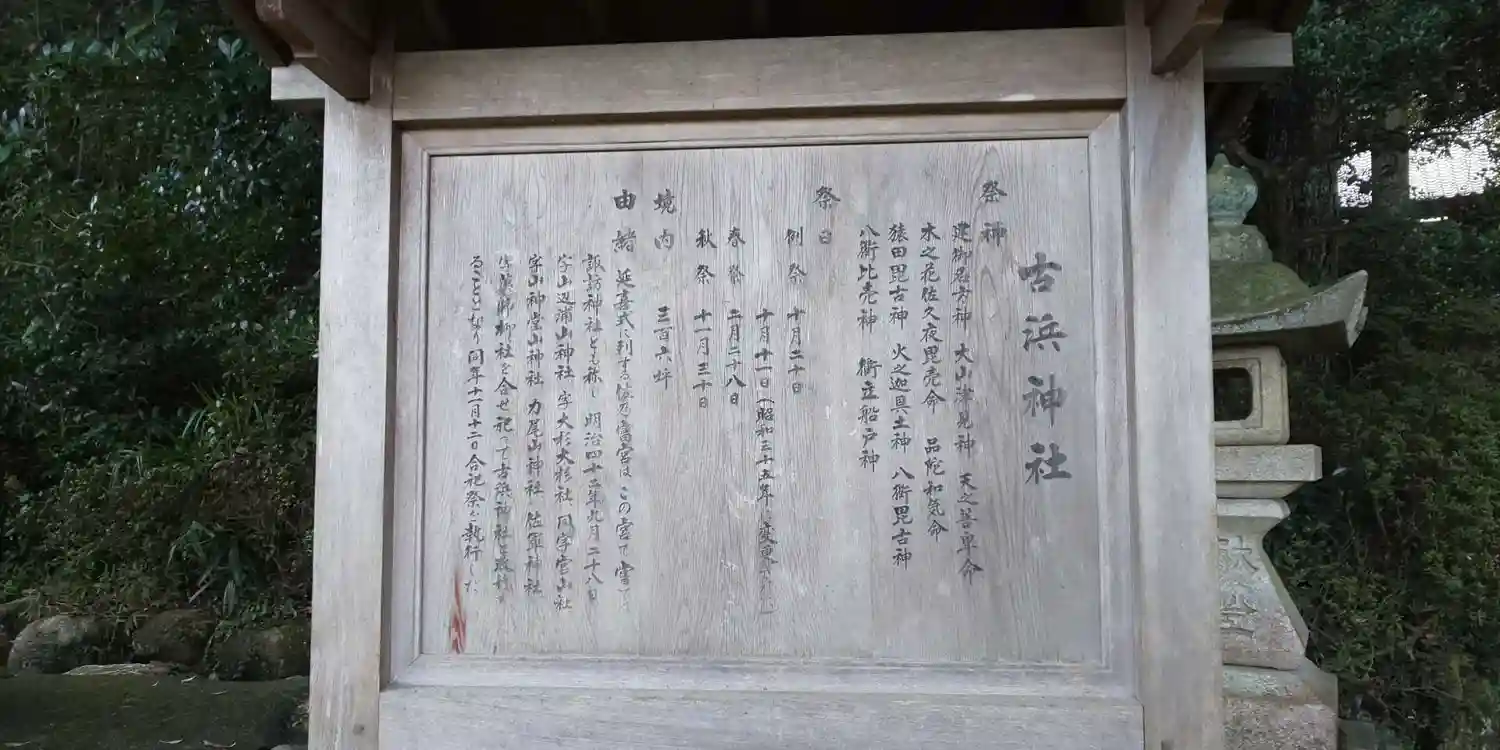 古浜神社
祭神
建御名方神 大山津見神 天之善卑命
木之花佐久夜毘売命 品陀和気命
猿田毘古神 火之迦具土神 八衢毘古神
八衢比売神 衢立船戸神
祭日
例祭 十月二十日
十月十一日(昭和三十五年 変更
春祭 二月二十八日
秋祭 十一月三十日
境内 三百六坪
由緒 延喜式に列する 宮は この宮で
諏訪神社とも称し 明治四十二年九月二十八日
字山辺浦山神社 字大杉大杉社 同字宮山社
字山神堂山神社 力尾山神社 佐軍神社
御社を合せ祀って古浜神社と
ることになり 同年十一月十二日合祀祭を執行した
献